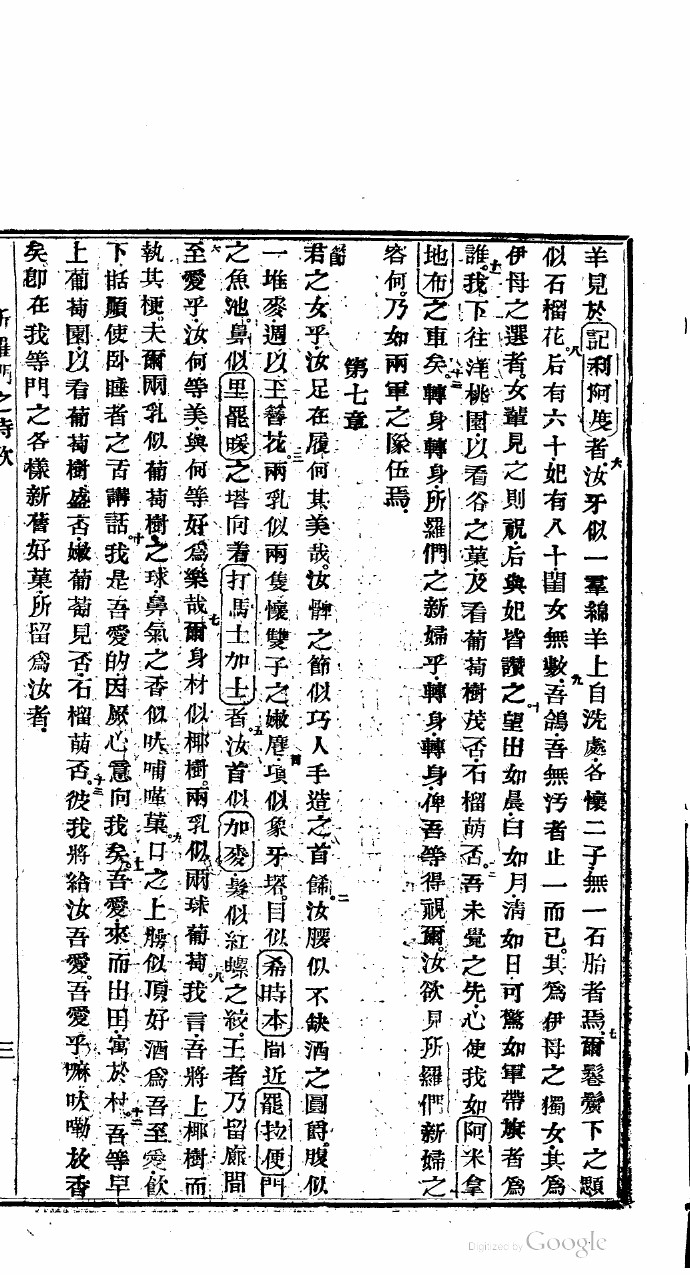 羊見於記利阿度者六汝牙似一羣綿羊上自洗處各懷二子無一石胎者焉七爾鬈髮下之題
似石榴花八后有六十妃有八十閨女無數九吾鴿吾無污者止一而已其爲伊母之獨女其爲
伊母之選者女輩見之則祝后與妃皆讚之十望出如晨白如月清如日可驚如軍帶旗者爲
誰十一我下往洋桃園以看谷之菓及看葡萄樹茂否石榴萌否十二吾未覺之先心使我如阿米拿
地布之車矣十三轉身轉身所羅們之新婦乎轉身轉身俾吾等得視爾汝欲見所羅們新婦之
容何乃如兩軍之隊伍焉
第七章
一節君之女乎汝足在履何其美哉汝髀之節似巧人手造之首飾二汝腰似不缺酒之圓爵腹似
一堆麥週以玉簪花三兩乳似兩隻懷雙子之嫩麀四項似象牙塔目似希時本間近罷拉便門
之魚池鼻似里罷暖之塔向着打馬士加士者五汝首似加麥髮似紅螺之絞王者乃留廊間
六至愛乎汝何等美與何等好爲樂哉七爾身材似椰樹兩乳似兩球葡萄八我言吾將上椰樹而
執其梗夫爾兩乳似葡萄樹之球鼻氣之香似吠哺𠾐菓九口之上腭似頂好酒爲吾至愛飮
下甛願使卧睡者之舌講話十我是吾愛的因厥心意向我矣十一吾愛來而出田寓於村十二吾等早
上葡萄園以看葡萄樹盛否嫩葡萄見否石榴萌否彼我將給汝吾愛十三吾愛乎嘛吠嘞放香
矣卽在我等門之各樣新舊好菓所留爲汝者
所羅們之詩歌
三
Digitized by Google